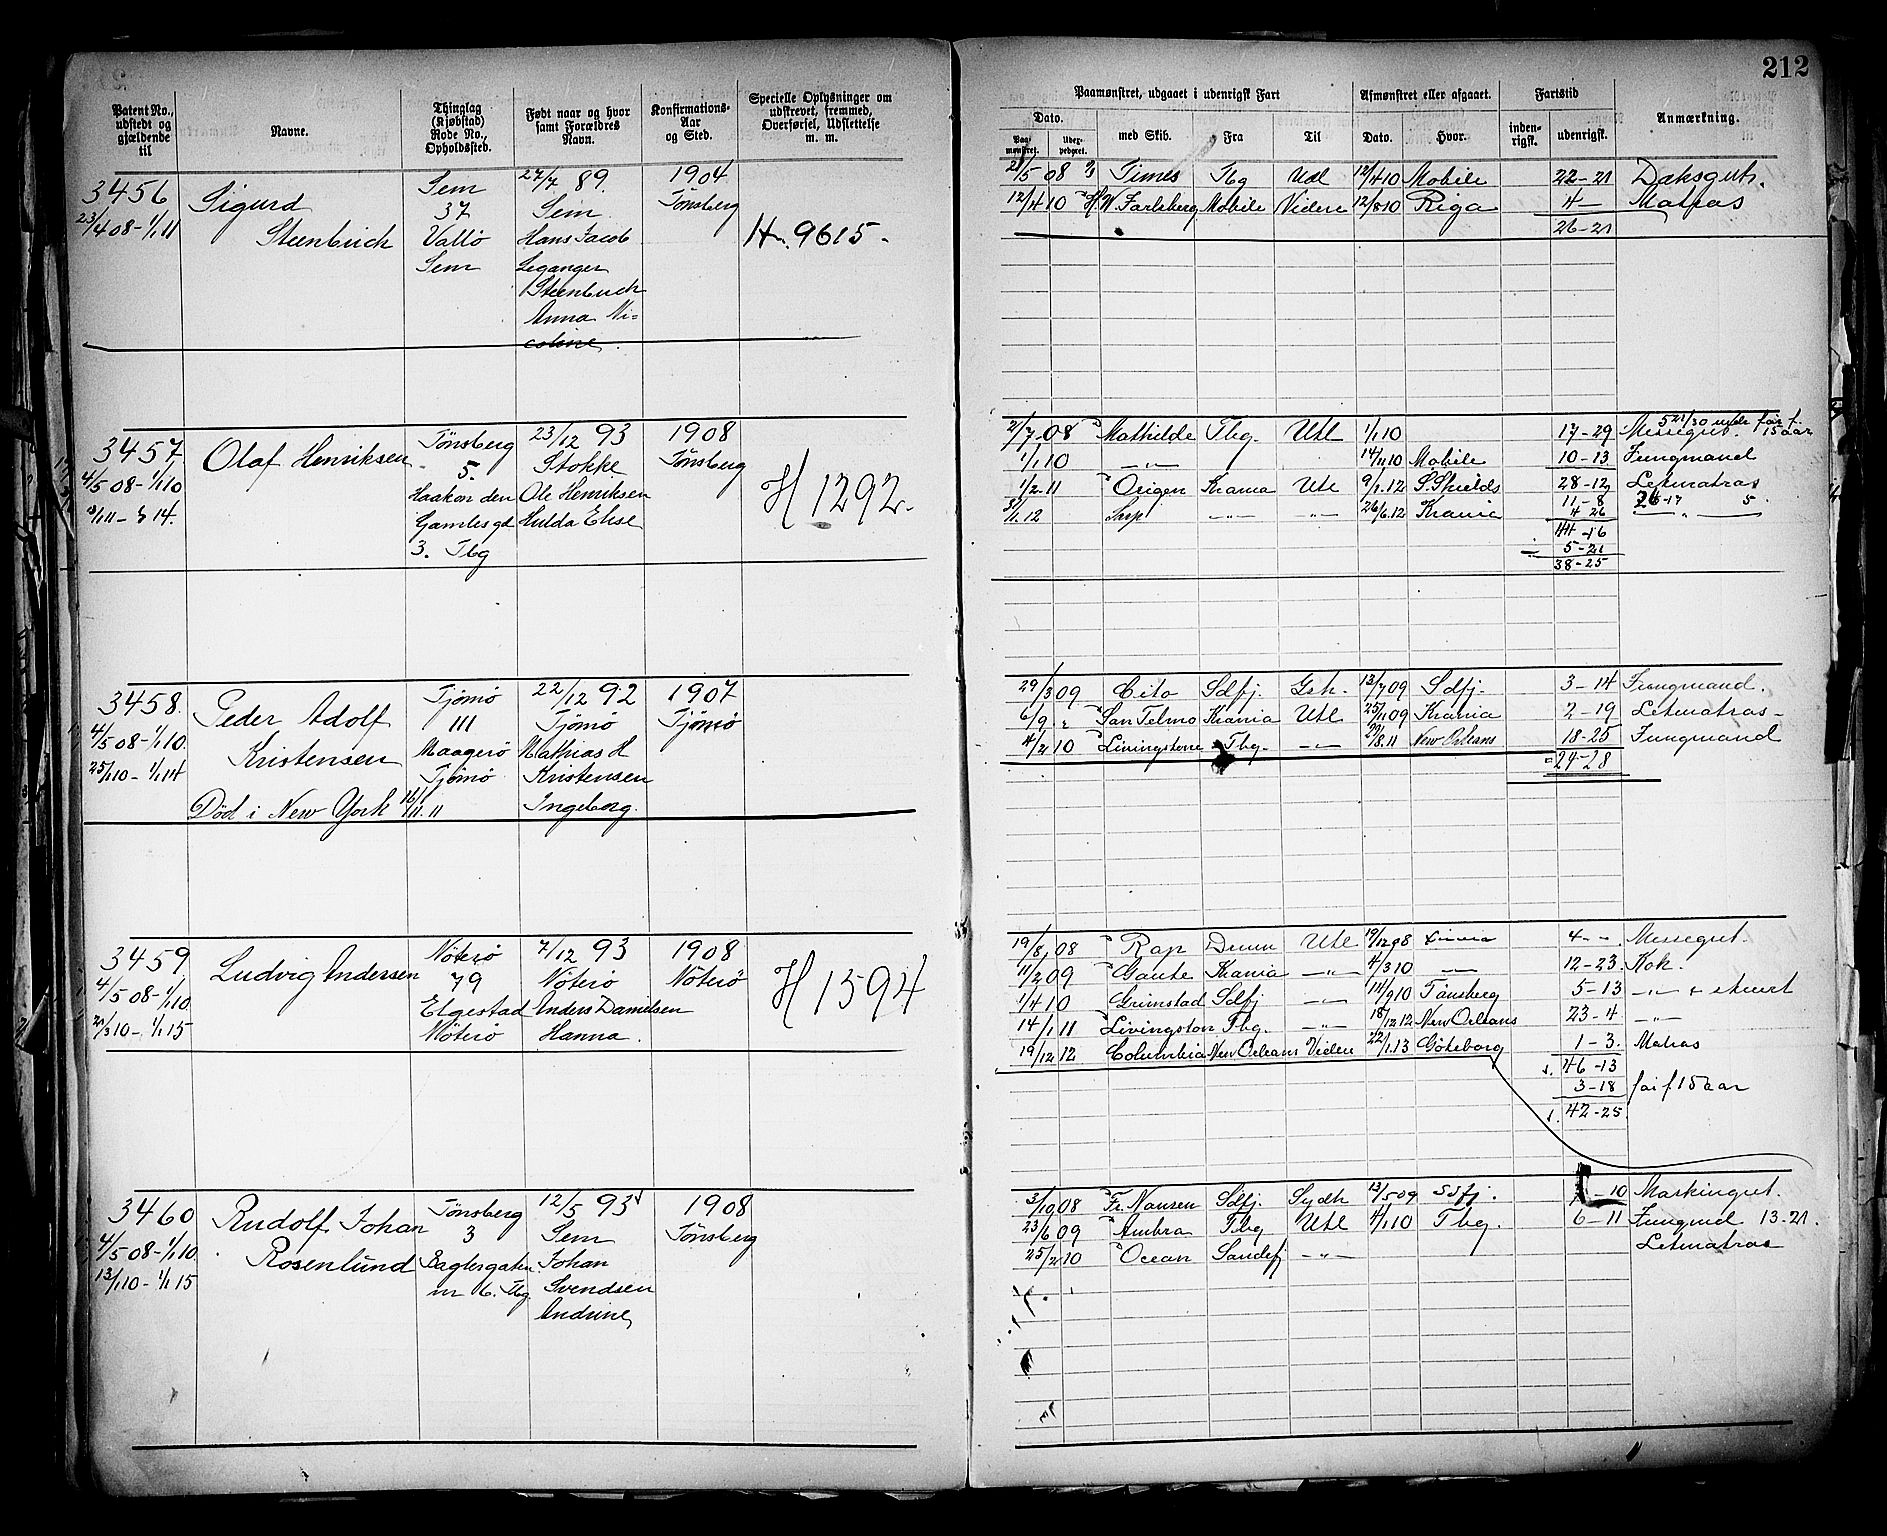 212
Patent No., udstedt og gjældende til
Navne.
Thinglag (Kjøbstad) Rode No., Opholdssted.
Født naar og hvor samt Forældres Navn.
Konfirmations-Aar og Sted.
Specielle Oplysninger om udskrevet, fremmed, Overførsel, Udslettelse m. m.
Paamønstret, udgaaet i udenrigsk Fart
Afmønstret eller afgaaet.
Fartstid
Anmærkning.
Dato.
med Skib.
Fra
Til
Dato.
Hvor.
inden-rigsk.
udenrigsk.
3456
23/4 08 - 1/1 11
Sigurd
Steenbuch
Sem
37
Vallö
Sem
27/7 89.
Sem
Hans Jacob
Leganger
Steenbuch
Anna Ni=
coline
1904
Tönsberg
Hr. 9615.
21/5 08 Times Tbg Udl 12/4 10 Mobile 22-21 Dæksgut.
12/4 10 H. W. Jarlsberg Mobile Videre 12/8 10 Riga 4- Matros
26-21
3457
4/5 08 - 1/1 10
Olaf Henriksen
Tönsberg
5.
Haakon den
Gamles gd
3. Tbg
23/12 93
Stokke
Ole Henriksen
Hulda Elise
1908
Tönsberg
H 1292.
2/7 08 Mathilde Tbg. Utl 1/1 10 17-29 Messegut. 5 21/30 under 15 aar
1/1 10 -"- 14/11 10 Mobile 10-13 Jungmand
1/2 11 Origen Krania Utl 9/1.12 S. Shields 28-12 Letmatros
1.12 Sarp -"- -"- 26/6.12 Krania 11-8
4 26
44-16
5-21
38-25
3458.
4/5 08 - 1/1 10.
25/1 10 - 1/1 14
Peder Adolf
Kristensen
Död i New York 16/11.11
Tjömö
111
Maagerö
Tjömö
22/12 92
Tjömö
Mathias H
Kristensen
Ingeborg.
1907
Tjömö
29/3 09 Cito Sdfj. Gsh. 13/7 09 Sdfj. 3-14 Jungmand.
6/9 " San Telmo Krania Utl 25/11 09 Krania 2-19 Letmatros
4/2 10 Livingstone Tbg. -"- 29/8.11 New Orleans 18-25 Jungmand
24-28
3459
4/5 08 - 1/1 10.
21/3 10 - 1/1 15
Ludvig Andersen
Nöterö
79
Elgestad
Nöterö
7/12 93
Nöterö
Anders Danielsen
Hanna.
1908
Nöterö
H 1594
19/8 08 Rap Dram Utl 19/12 08 4- - Messegut.
11/2 09 Gaute Krania -"- 4/3 10 -"- 12-23 Kok.
1/4 10 Grimstad Sdfj -"- 14/9 10 Tönsberg 5-13 -"- & stuert
14/1 11 Livingston Tbg. -"- 18/12 12 New Orleans 23-4 -"-
19/12 12 Columbia New Orleans Videre 22/1.13 Göteborg 1-3. Matros
46-13
3-18 før f 15 aar
42-25.
3460
4/5 08 - 1/1 10
13/1 10 - 1/1 15
Rudolf Johan
Rosenlund
Tönsberg
3
Baglergaten
nr 6. Tbg.
12/5 93
Sem
Johan
Svendsen
Andrine
1908
Tönsberg
3/10 08 Fr. Nansen Sdfj. Sydh 13/5 09 Sdfj. -10 Maskingut.
23/6 09 Ambra Tbg Utl 4/1 10 Tbg. 6-11 Jungmd 13-21.
25/2 10 Ocean Sandefj -"- Letmatros